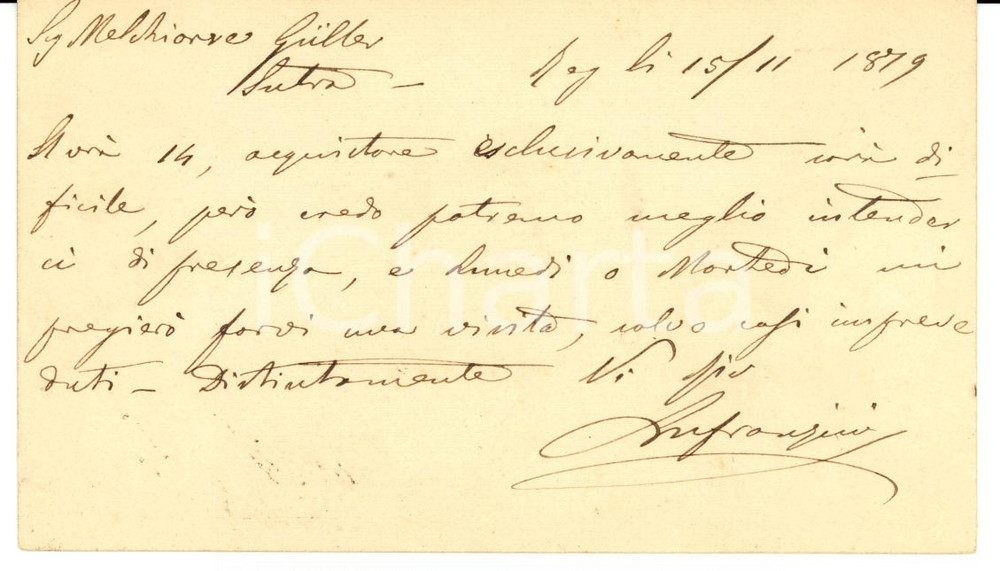 Sg Melchiorre Güller
Intra – Reg li 15/11 1879
14, acquistare esclusivamente sarà di
ficile, però credo potremo meglio intender
ci di presenza, e Lunedi o Martedì mi
pregierò farvi una visita, salvo casi impreve
duti – Distintamente Vi
iCharta